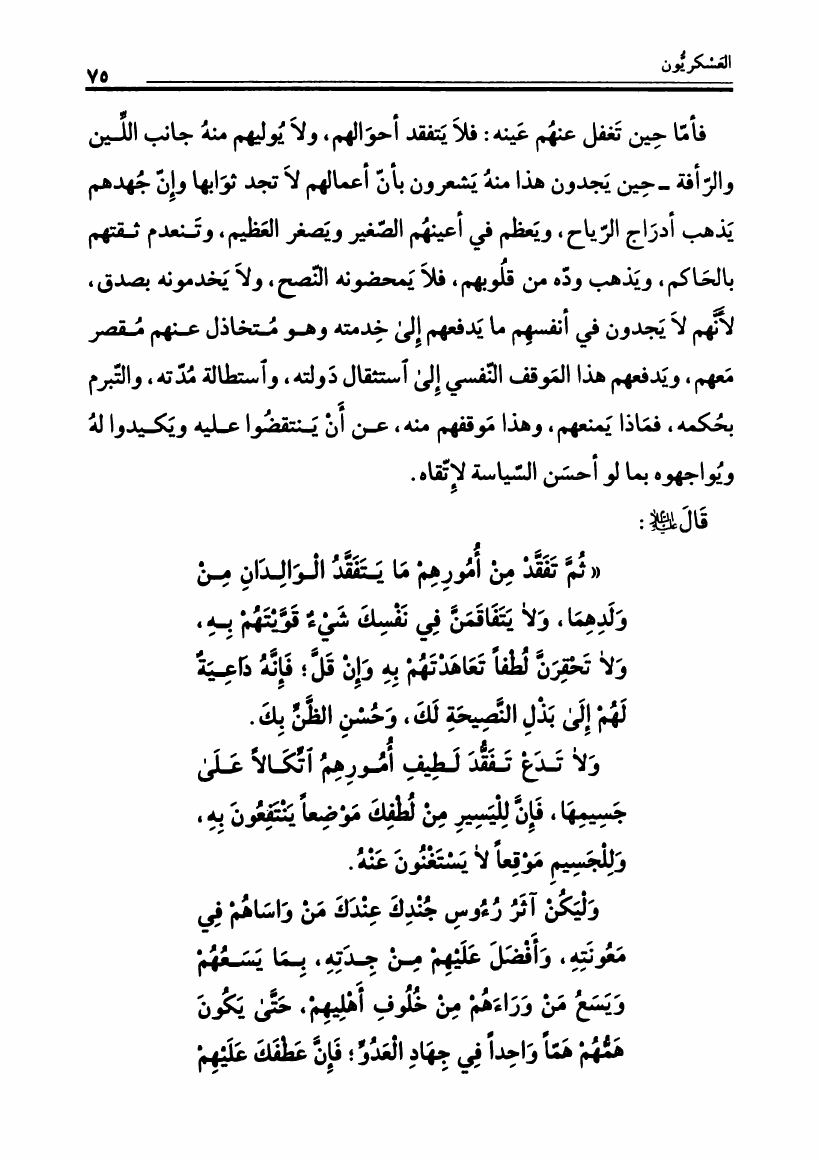 العَسْكريُّون
٧٥
فأمّا حِين تَغفل عنهُم عَينه: فلاَ يَتفقد أحوَالهم، ولاَ يُوليهم منهُ جانب اللِّـين
والرّأفة ـ حِين يَجدون هذا منهُ يَشعرون بأنّ أعمالهم لاَ تجد ثوَابها وإنّ جُهدهم
يَذهب أدرَاج الرّياح، ويَعظم في أعينهُم الصّغير ويَصغر العَظيم، وتَـنعدم ثـقتهم
بالحَاكم، ويَذهب ودّه من قلُوبهم، فلاَ يَمحضونه النّصح، ولاَ يَخدمونه بصدق،
لأنَّهم لاَ يَجدون في أنفسهِم ما يَدفعهم إلىٰ خِدمته وهـو مُـتخاذل عـنهم مُـقصر
مَعهم، ويَدفعهم هذا المَوقف النّفسي إلىٰ ٱستثقال دَولته، وٱستطالة مُدّته، والتّبرم
بحُكمه، فمَاذا يَمنعهم، وهذا مَوقفهم منه، عـن أَنْ يَـنتقضُوا عـليه ويَكـيدوا لهُ
ويُواجهوه بما لو أحسَن السّياسة لإتّقاه.
قَالَ عليه السلام :
« ثُمَّ تَفَقَّدْ مِنْ أُمُورِهِمْ مَا يَـتَفَقَّدُ الْـوَالِـدَانِ مِـنْ
وَلَدِهِمَا، وَلاٰ يَتَفَاقَمَنَّ فِي نَفْسِكَ شَيْءٌ قَوَّيْتَهُمْ بِـهِ،
وَلاٰ تَحْقِرَنَّ لُطْفاً تَعَاهَدْتَهُمْ بِهِ وَإِنْ قَلَّ؛ فَإِنَّهُ دَاعِـيَةٌ
لَهُمْ إِلَىٰ بَذْلِ النَّصِيحَةِ لَكَ، وَحُسْنِ الظَّنِّ بِكَ.
وَلاٰ تَـدَعْ تَـفَقُّدَ لَـطِيفِ أُمُـورِهِمُ ٱتِّكَـالاً عَـلَىٰ
جَسِيمِهَا، فَإِنَّ لِلْيَسِيرِ مِنْ لُطْفِكَ مَوْضِعاً يَنْتَفِعُونَ بِهِ،
وَلِلْجَسِيمِ مَوْقِعاً لاٰ يَسْتَغْنُونَ عَنْهُ.
وَلْيَكُنْ آثَرُ رُءُوسِ جُنْدِكَ عِنْدَكَ مَنْ وَاسَاهُمْ فِي
مَعُونَتِهِ، وَأَفْضَلَ عَلَيْهِمْ مِـنْ جِـدَتِهِ، بِـمَا يَسَـعُهُمْ
وَيَسَعُ مَنْ وَرَاءَهُمْ مِنْ خُلُوفِ أَهْلِيهِمْ، حَتَّىٰ يَكُونَ
هَمُّهُمْ هَمّاً وَاحِداً فِي جِهَادِ الْعَدُوِّ؛ فَإِنَّ عَطْفَكَ عَلَيْهِمْ